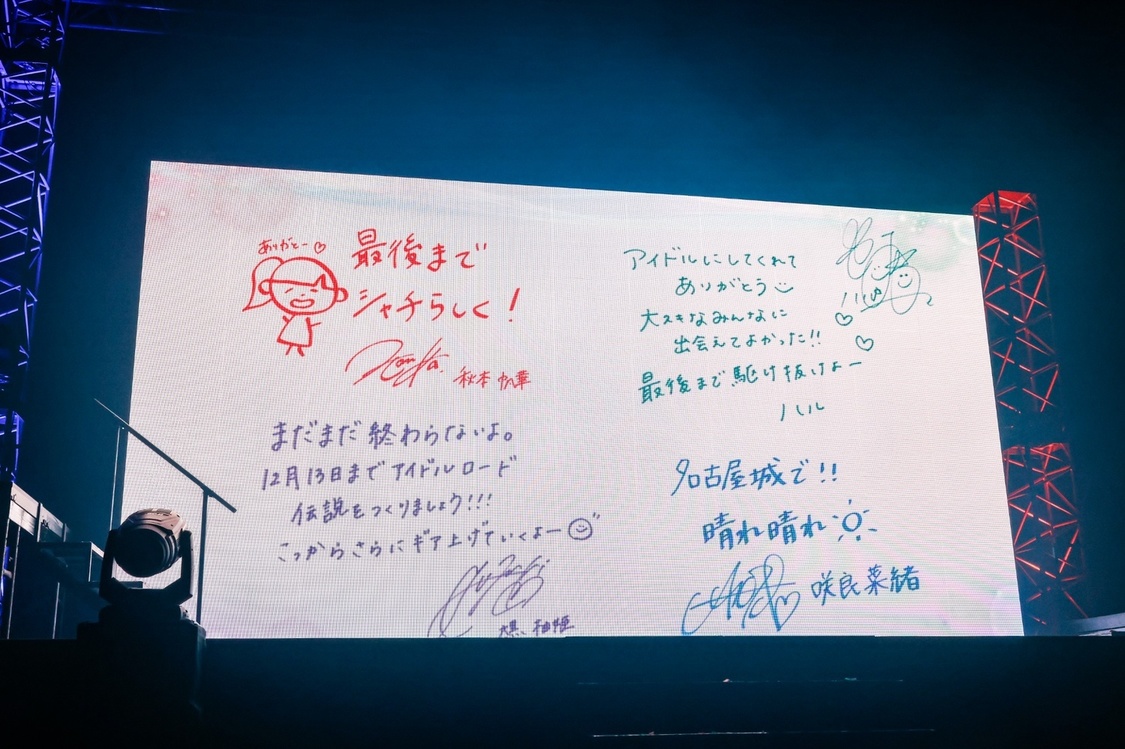 ありがとー♡
最後まで
シャチらしく！
秋本 帆華
まだまだ終わらないよ。
12月13日までアイドルロード
伝説をつくりましょう!!!
こっからさらにギア上げていくよー
大黒 柚姫
アイドルにしてくれて
ありがとう
大スキなみんなに
出会えてよかった!!
最後まで駆け抜けよー
ハル
名古屋城で!!
晴れ晴れ
咲良菜緒